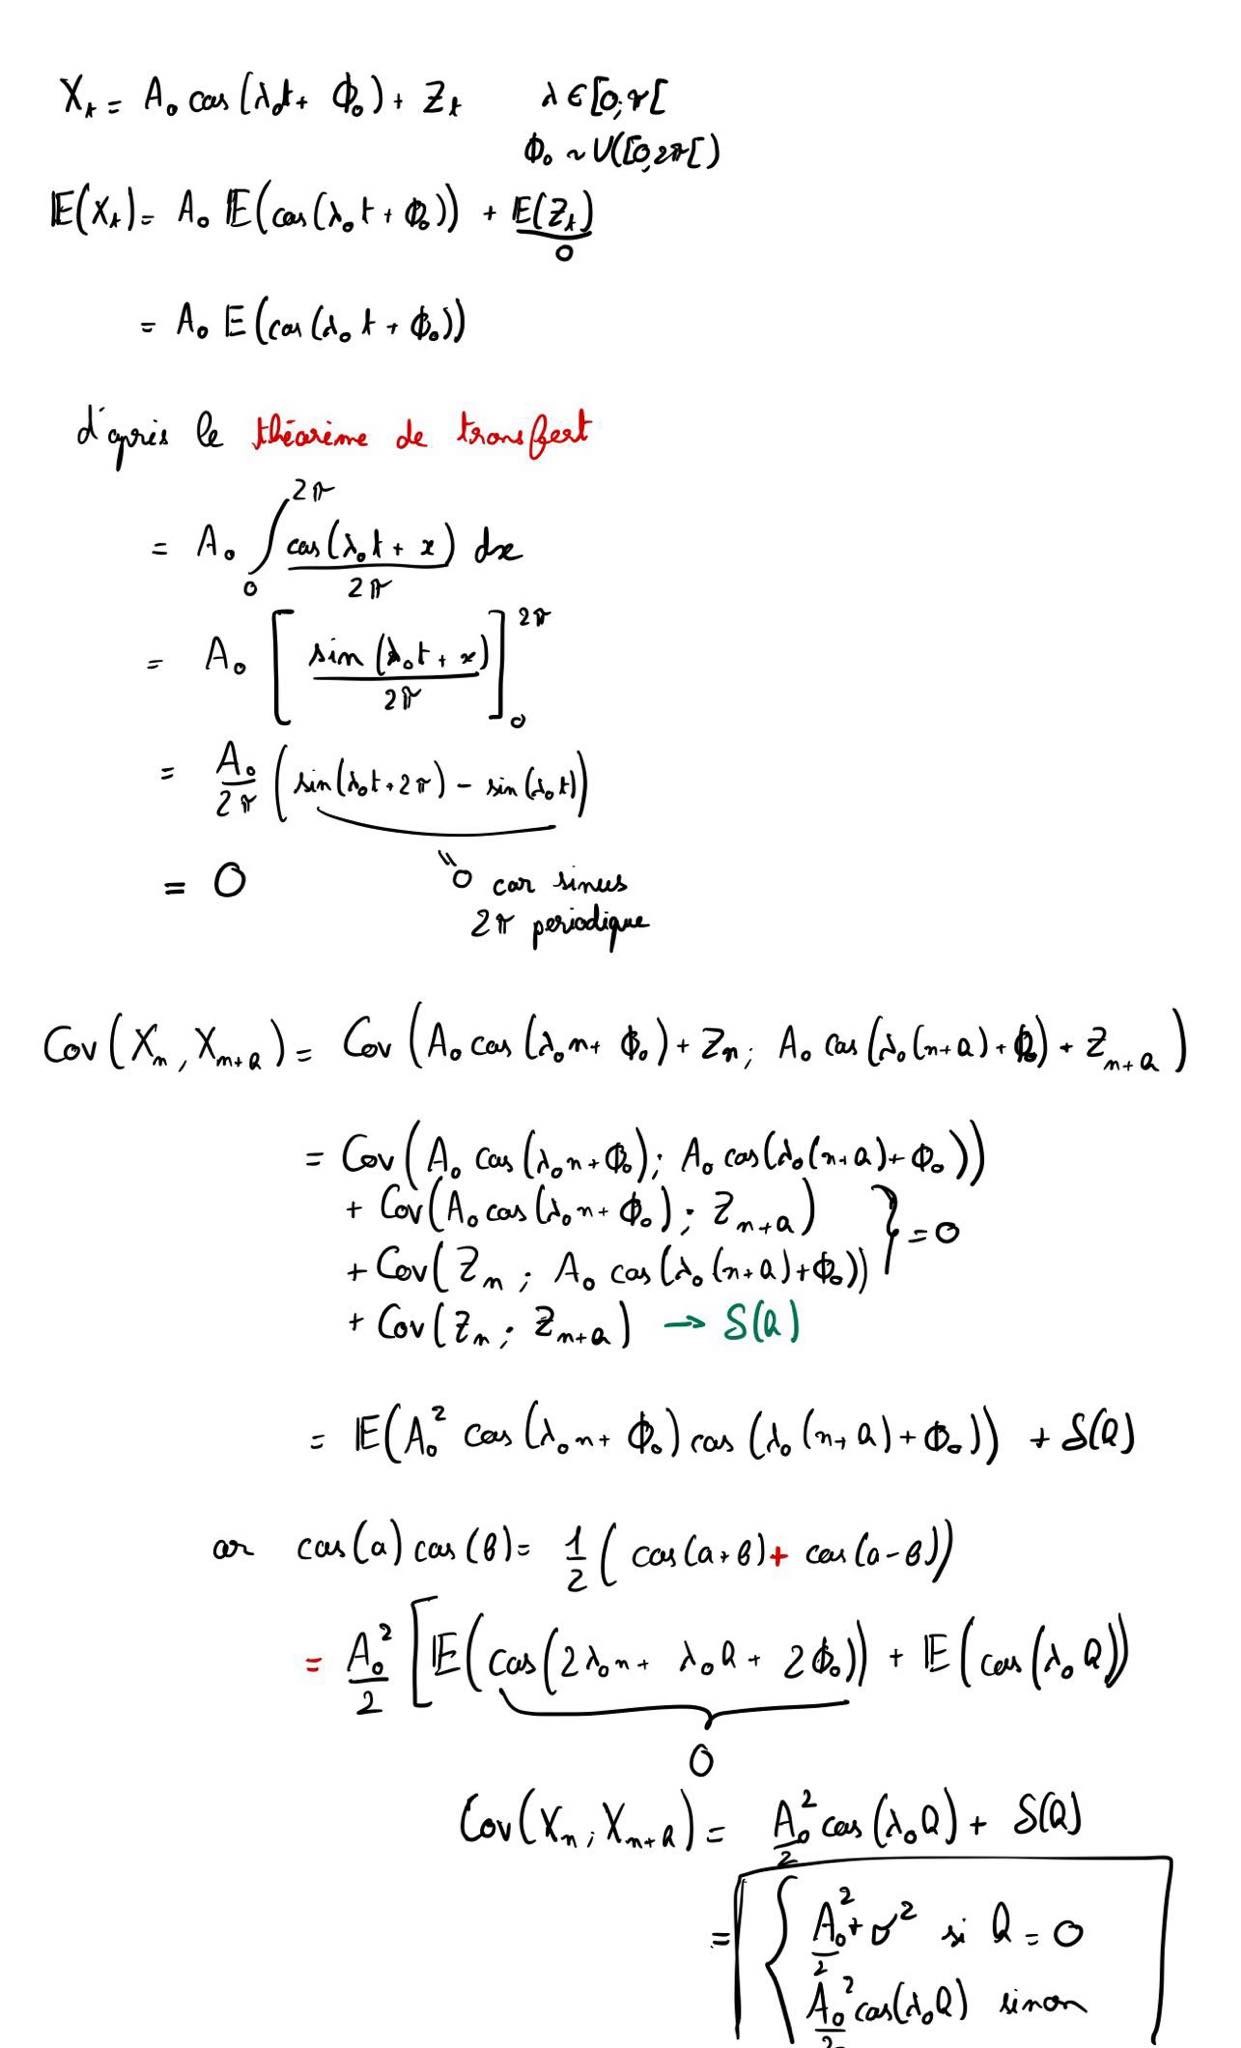 X_t = A_0 cos(λ_0t + Φ_0) + Z_t λ ∈ [0; π[
Φ_0 ~ U([0, 2π[)
𝔼(X_t) = A_0 𝔼(cos(λ_0 t + Φ_0)) + 𝔼(Z_t)
0
= A_0 E(cos(λ_0 t + Φ_0))
d'après le théorème de transfert
= A_0 ∫_0^{2π} cos(λ_0t + x)/2π dx
= A_0 [sin(λ_0t + x)/2π]_0^{2π}
= A_0/2π (sin(λ_0t + 2π) - sin(λ_0 t))
= 0 "0 car sinus
2π periodique
Cov(X_n, X_{n+h}) = Cov(A_0 cos(λ_0 n + Φ_0) + Z_n; A_0 cos(λ_0(n+h) + Φ_0) + Z_{n+h})
= Cov(A_0 cos(λ_0 n + Φ_0); A_0 cos(λ_0(n+h) + Φ_0))
+ Cov(A_0 cos(λ_0 n + Φ_0); Z_{n+h})
} = 0
+ Cov(Z_n; A_0 cos(λ_0(n+h) + Φ_0))
+ Cov(Z_n; Z_{n+h}) → δ(h)
= 𝔼(A_0^2 cos(λ_0 n + Φ_0) cos(λ_0(n+h) + Φ_0)) + δ(h)
or cos(a) cos(b) = 1/2 (cos(a+b) + cos(a-b))
= A_0^2/2 [𝔼(cos(2λ_0 n + λ_0 h + 2Φ_0)) + 𝔼(cos(λ_0 h))
0
Cov(X_n; X_{n+h}) = A_0^2/2 cos(λ_0 h) + δ(h)
= { A_0^2/2 + σ^2 si h = 0
A_0^2/2 cos(λ_0 h) sinon